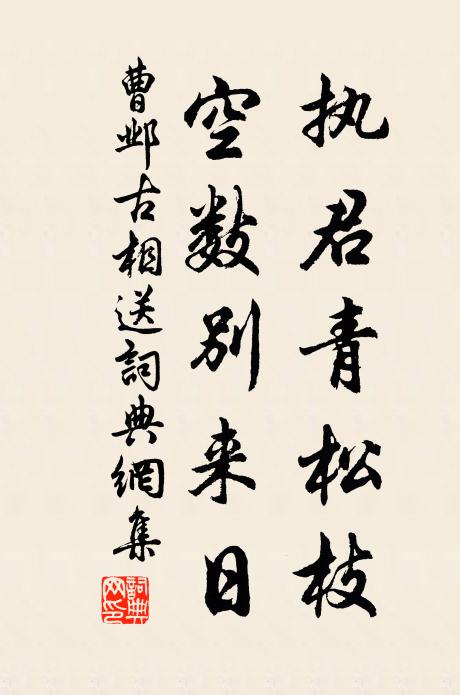 执君青松枝
空数别来日
曹邺古相送詞典網集
詞典网印